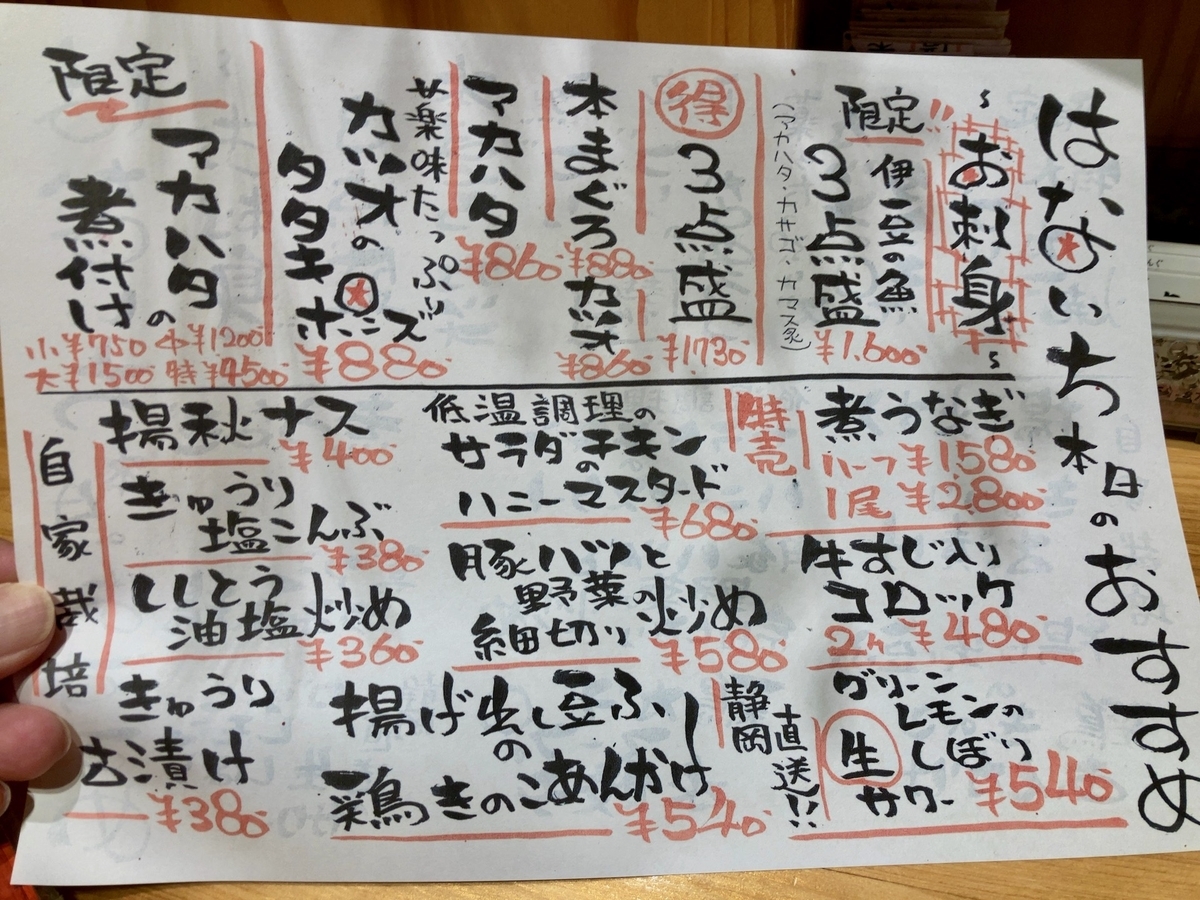 はないち 本日のおすすめ
お刺身
限定!!
伊豆の魚
3点盛
¥1,600
(アカハタ・カサゴ・カマス炙)
得
3点盛
¥1730
本まぐろ
¥880
カツオ
¥860
アカハタ
¥860
薬味たっぷり
カツオの
タタキポンズ
¥880
限定
アカハタの
煮付け
小¥750 中¥1200
大¥1500 特¥4500
煮うなぎ
ハーフ ¥1580
1尾 ¥2800
特売
牛すじ入り
コロッケ
2ヶ ¥480
グリーン
レモンの
生しぼり
サワー ¥540
静岡
直送!!
低温調理の
サラダチキンの
ハニーマスタード
¥680
豚ハツと
野菜の
細切り炒め
¥580
揚げ出し豆ふの
鶏きのこあんかけ
¥540
自家栽培
揚秋ナス
¥400
きゅうり
塩こんぶ
¥380
ししとう
油塩炒め
¥360
きゅうり
古漬け
¥380